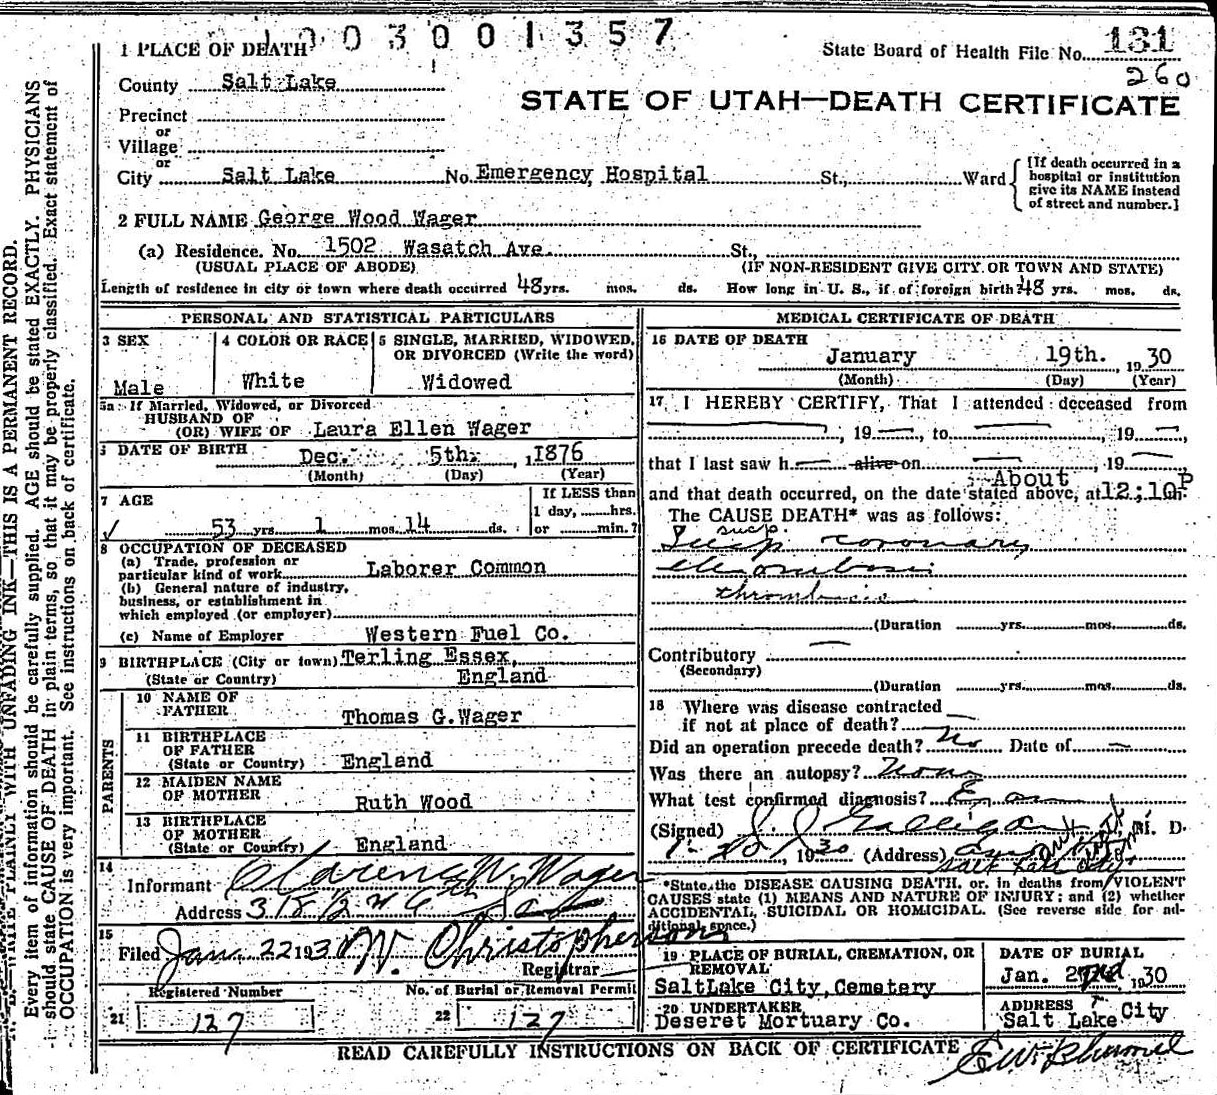 1003001357
1 PLACE OF DEATH
State Board of Health File No. 131
260
County Salt Lake
STATE OF UTAH—DEATH CERTIFICATE
Precinct
or
Village
or
City Salt Lake No. Emergency Hospital St., Ward
[If death occurred in a
hospital or institution
give its NAME instead
of street and number.]
2 FULL NAME George Wood Wager
(a) Residence. No. 1502 Wasatch Ave. St.,
(USUAL PLACE OF ABODE) (IF NON-RESIDENT GIVE CITY OR TOWN AND STATE)
Length of residence in city or town where death occurred 48 yrs. mos. ds. How long in U. S., if of foreign birth? 48 yrs. mos. ds.
PERSONAL AND STATISTICAL PARTICULARS
3 SEX
Male
4 COLOR OR RACE
White
5 SINGLE, MARRIED, WIDOWED,
OR DIVORCED (Write the word)
Widowed
5a If Married, Widowed, or Divorced
HUSBAND OF
(OR) WIFE OF Laura Ellen Wager
6 DATE OF BIRTH Dec. 5th, 1876
(Month) (Day) (Year)
7 AGE
53 yrs. 1 mos. 14 ds.
If LESS than
1 day, hrs.
or min.?
8 OCCUPATION OF DECEASED
(a) Trade, profession or
particular kind of work Laborer Common
(b) General nature of industry,
business, or establishment in
which employed (or employer)
(c) Name of Employer Western Fuel Co.
9 BIRTHPLACE (City or town) Terling Essex,
(State or Country) England
PARENTS
10 NAME OF
FATHER Thomas G. Wager
11 BIRTHPLACE
OF FATHER
(State or Country) England
12 MAIDEN NAME
OF MOTHER Ruth Wood
13 BIRTHPLACE
OF MOTHER
(State or Country) England
14
Informant Clarence W. Wager
Address 318 1/2 W 6th So
15
Filed Jan. 22 1930 W. Christopherson
Registrar
Registered Number No. of Burial or Removal Permit
21 127 22 127
MEDICAL CERTIFICATE OF DEATH
16 DATE OF DEATH
January 19th. 1930
(Month) (Day) (Year)
17 I HEREBY CERTIFY, That I attended deceased from
, 19 —, to — , 19 —,
that I last saw h — alive on — , 19 —
About
and that death occurred, on the date stated above, at 12:10P m.
The CAUSE DEATH* was as follows:
susp.
Susp coronary
thrombosis
thrombosis
(Duration yrs. mos. ds.
Contributory —
(Secondary)
(Duration yrs. mos. ds.
18 Where was disease contracted
if not at place of death? —
Did an operation precede death? No Date of —
Was there an autopsy? None
What test confirmed diagnosis?
(Signed) Galligan, M. D.
1-20, 1930 (Address)
Salt Lake City
*State the DISEASE CAUSING DEATH, or, in deaths from VIOLENT
CAUSES state (1) MEANS AND NATURE OF INJURY; and (2) whether
ACCIDENTAL, SUICIDAL OR HOMICIDAL. (See reverse side for ad-
ditional space.)
19 PLACE OF BURIAL, CREMATION, OR
REMOVAL
SaltLake City, Cemetery
DATE OF BURIAL
Jan. 22nd 1930
20 UNDERTAKER
Deseret Mortuary Co.
ADDRESS
Salt Lake City
READ CAREFULLY INSTRUCTIONS ON BACK OF CERTIFICATE
N. B.—WRITE PLAINLY WITH UNFADING INK—THIS IS A PERMANENT RECORD.
Every item of information should be carefully supplied. AGE should be stated EXACTLY. PHYSICIANS
should state CAUSE OF DEATH in plain terms, so that it may be properly classified. Exact statement of
OCCUPATION is very important. See instructions on back of certificate.